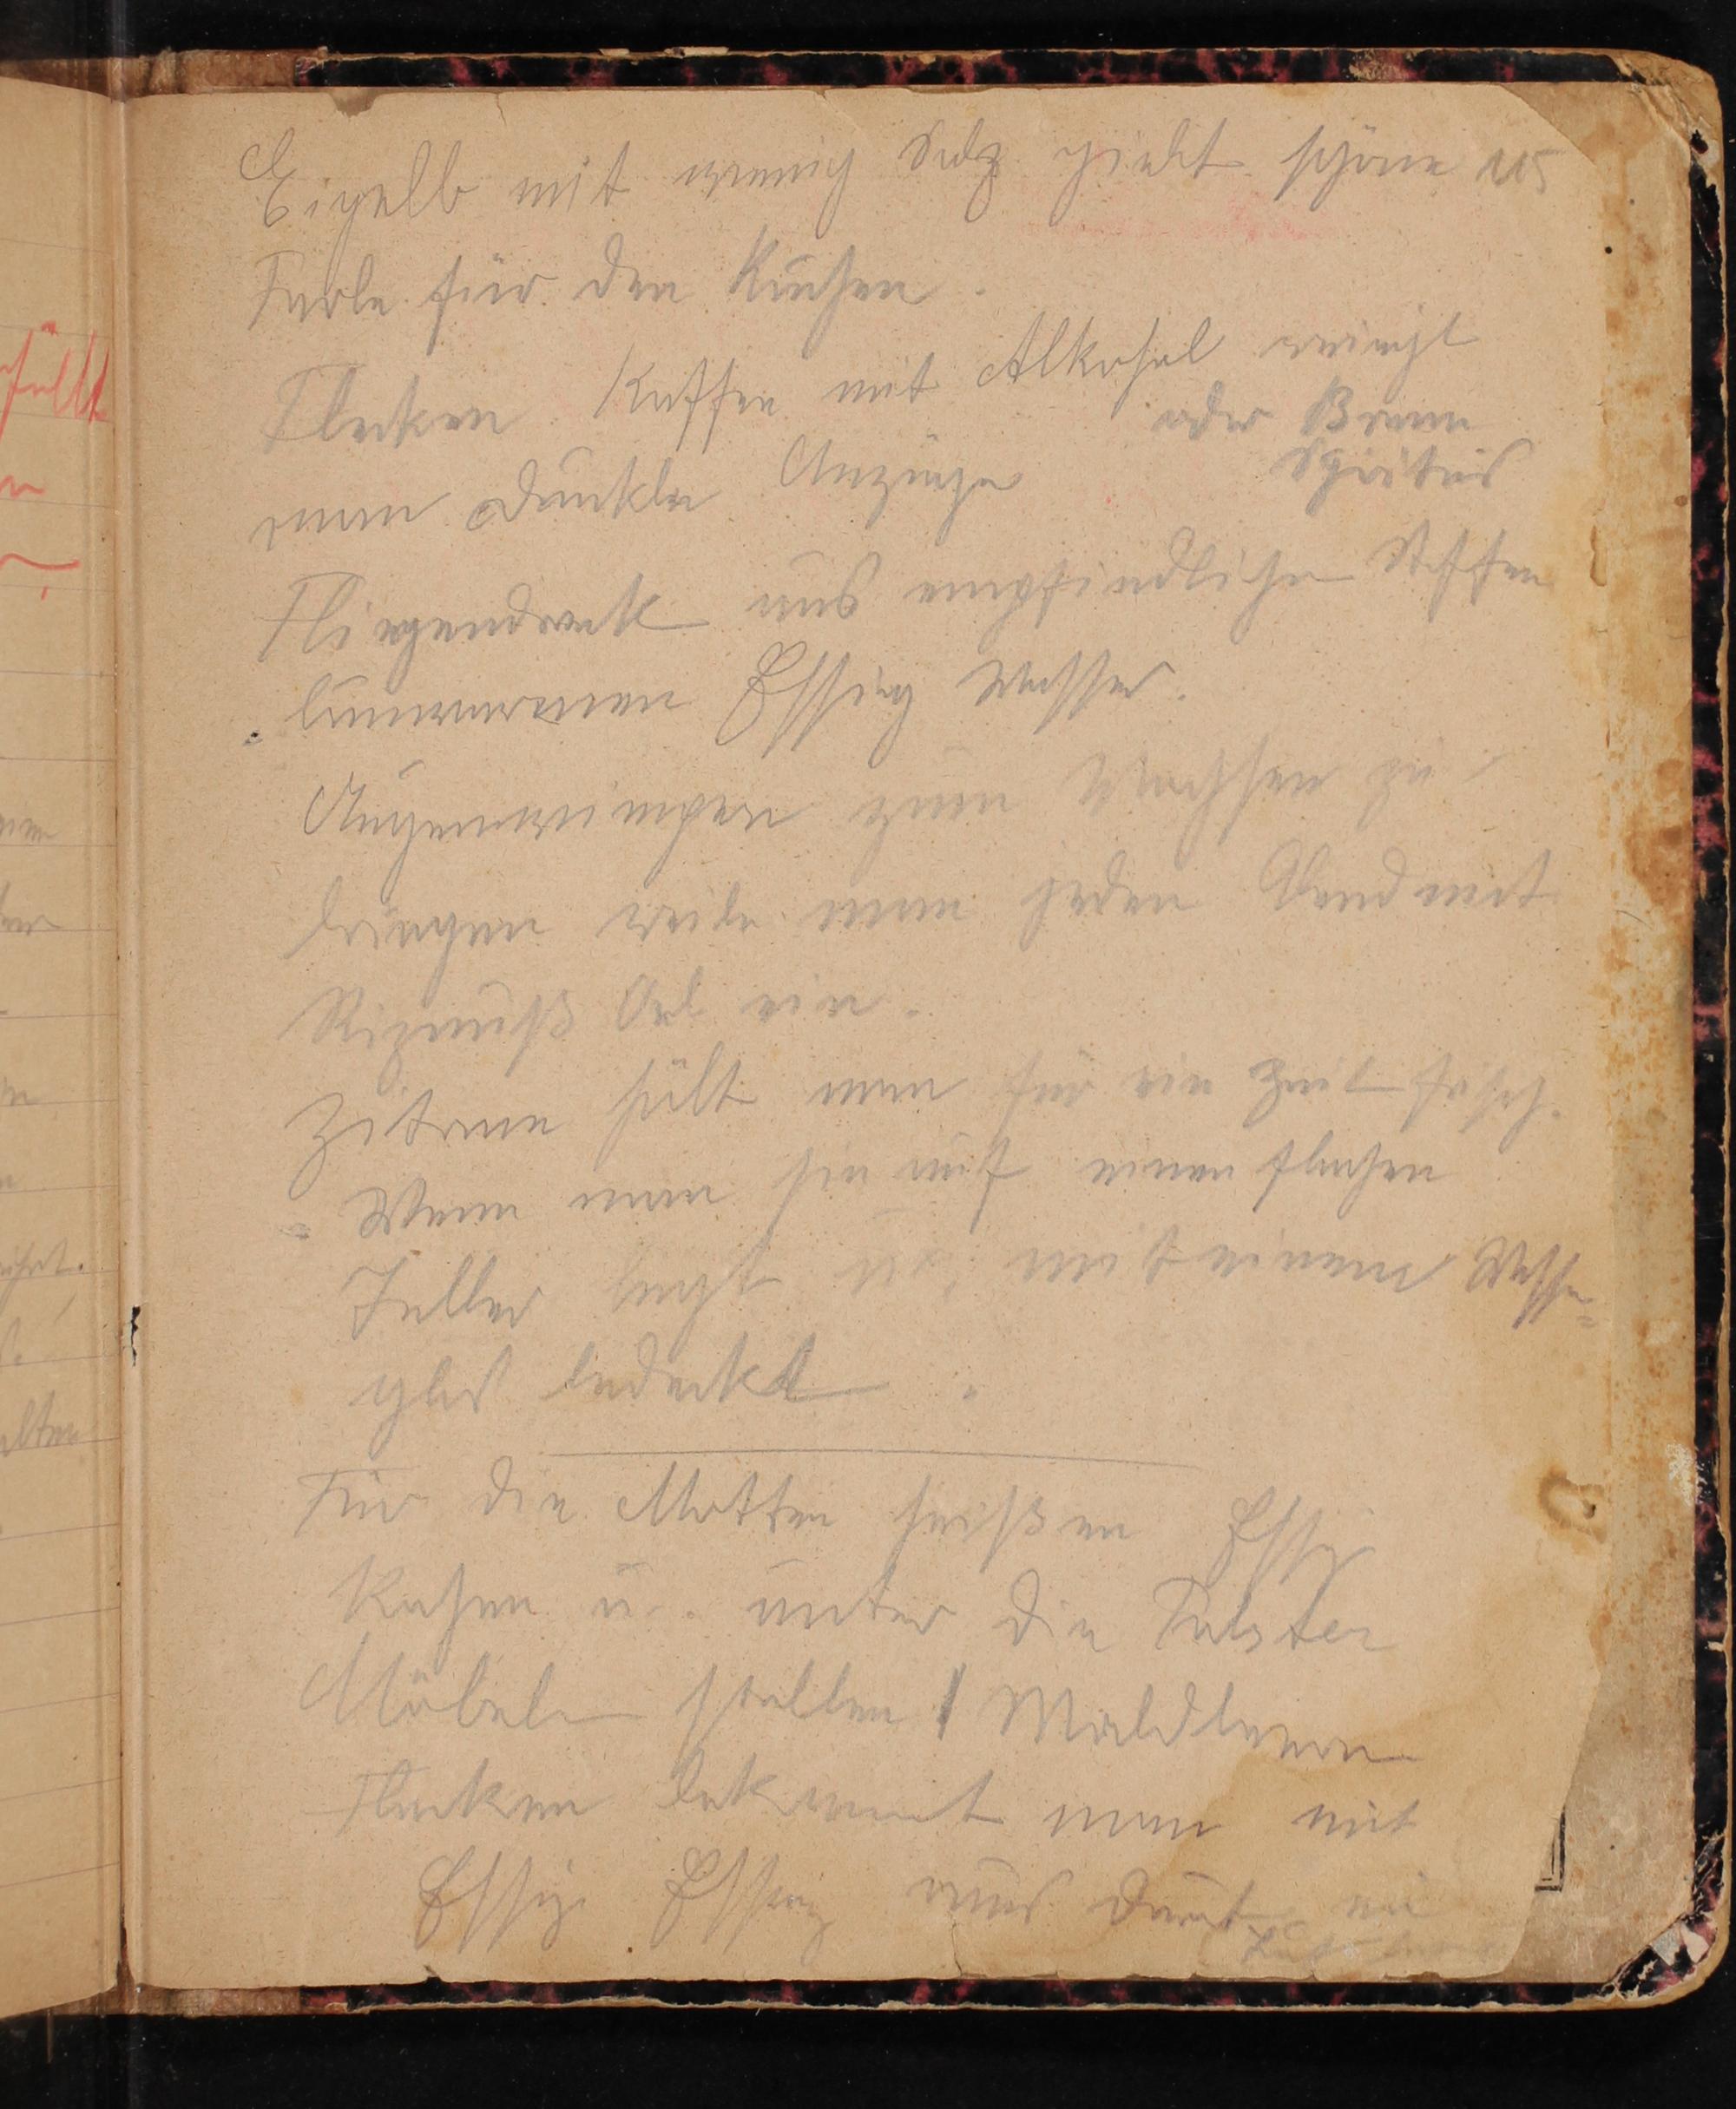 115
Eigelb mit wenig Salz giebt schöne
Farbe für den Kuchen.
Flecken Kaffee mit Alkohol reinigt
oder Brenn
Spiritus
man dunkle Anzüge
Fliegendreck aus empfindlichen Stoffen
lauwarmen Essig Wasser.
Augenwimpern zum Wachsen zu
bringen reibe man jeden Abend mit
Rizinuß Oel ein.
Zitrone hält man für ein Zeit frisch.
Wenn man sie auf einen flachen
Teller legt u. mit einem Wasser=
glas bedeckt.
Für die Motten heißen Essig
Kochen u. unter die Polster
Möbel stellen Waldbeern
Flecken bekommt man mit
Essig Essig aus